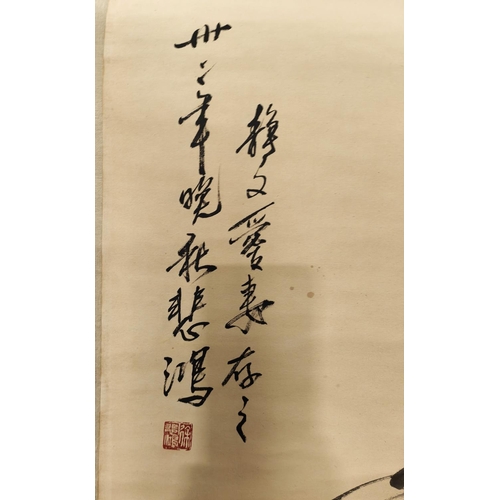 静文愛妻存之
卅二年晚秋悲鴻